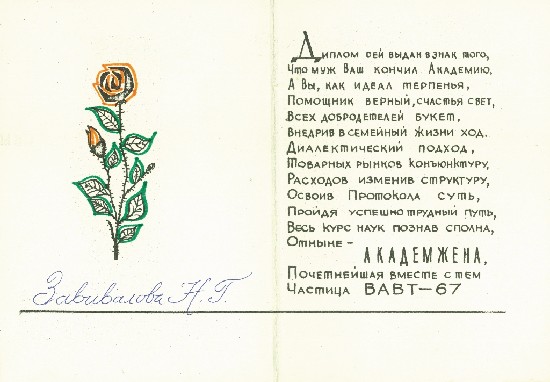 Завивалова Н.Г.
Диплом сей выдан в знак того,
Что муж Ваш кончил Академию.
А Вы, как идеал терпенья,
Помощник верный, счастья свет,
Всех добродетелей букет,
Внедрив в семейный жизни ход
Диалектический подход,
Товарных рынков конъюнктуру,
Расходов изменив структуру,
Освоив Протокола суть,
Пройдя успешно трудный путь,
Весь курс наук познав сполна,
Отныне –
АКАДЕМЖЕНА,
Почетнейшая вместе с тем
Частица ВАВТ–67